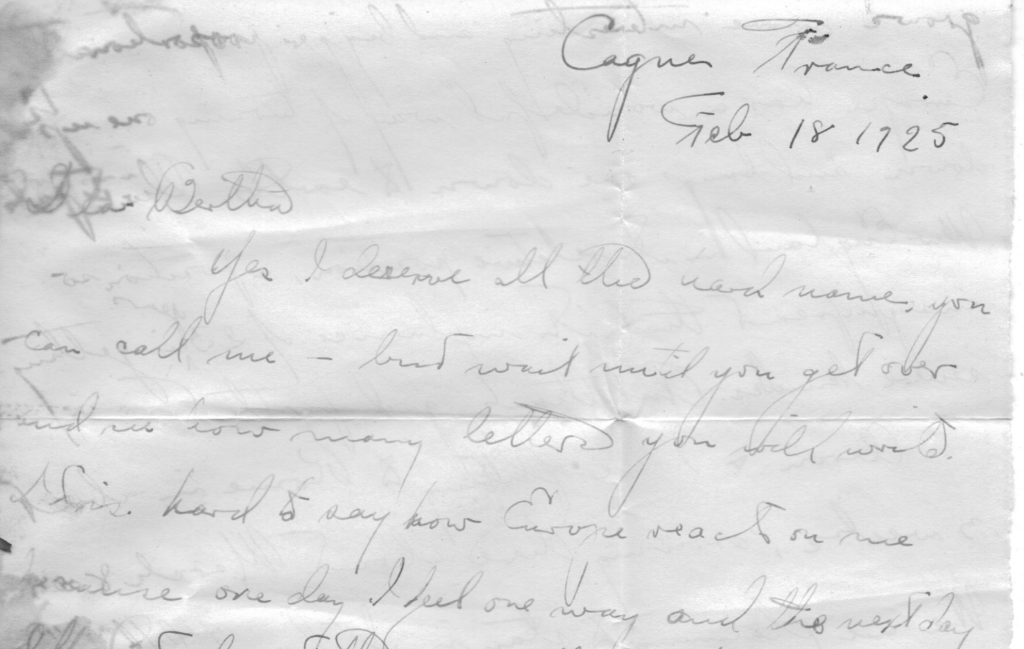 Cagnes France
Feb 18 1925
Bertha
Yes I deserve all the hard names you
can call me - but wait until you get over
and see how many letters you will write.
hard to say how Europe reacts on me
because one day I feel one way and the next day